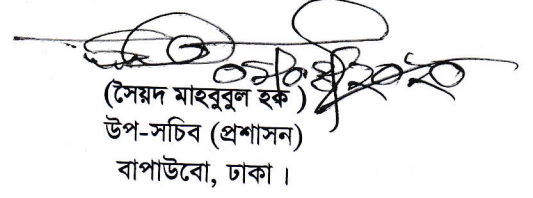 (সৈয়দ মাহবুবুল হক)
উপ-সচিব (প্রশাসন)
বাপাউবো, ঢাকা ।